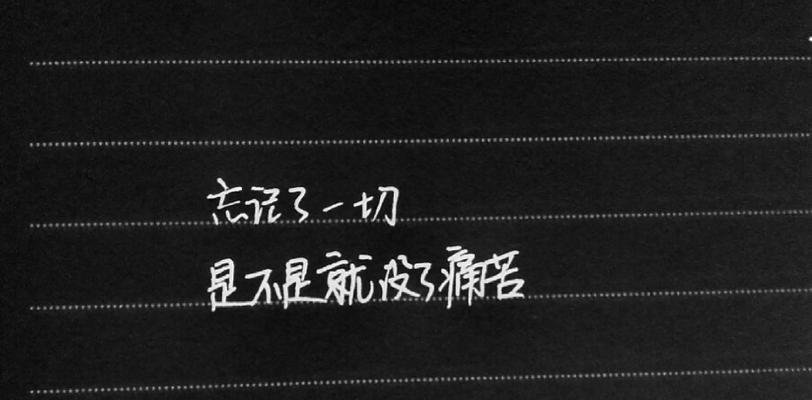 忘记了一切
是不是就没了痛苦